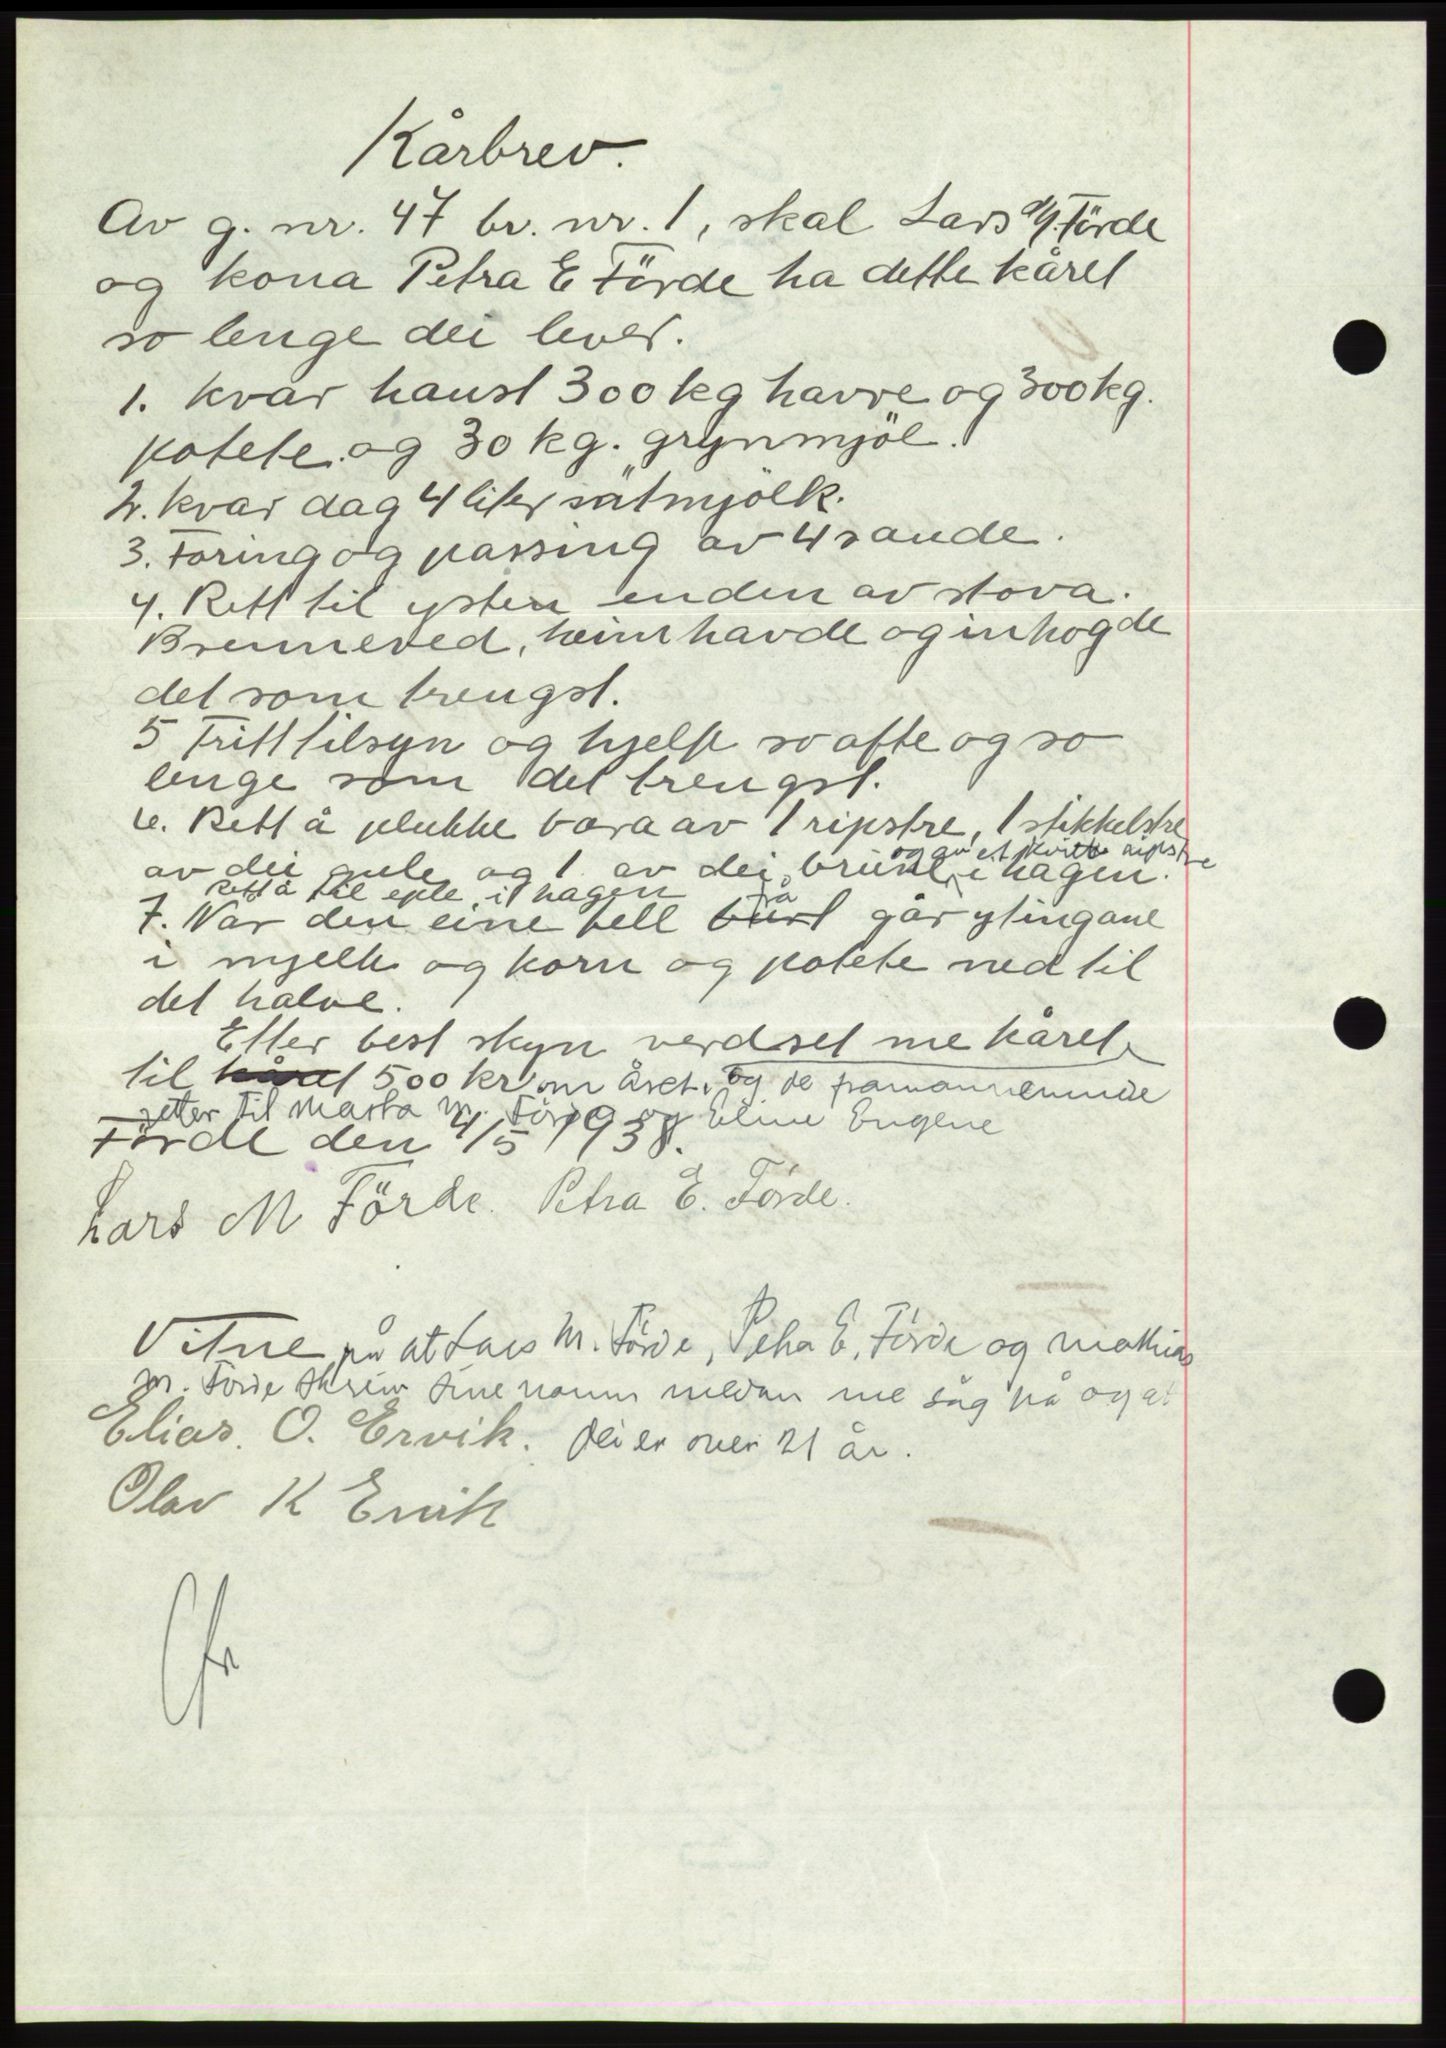 Kårbrev.
Av g. nr. 47 br. nr. 1, skal Lars M. Förde
og kona Petra E Förde ha dette kåret
so lenge dei lever.
1. kvar haust 300 kg havre og 300 kg.
potete og 30 kg. grynmjöl.
2. kvar dag 4 liter sötmjölk.
3. Foring og passing av 4 saude.
4. Rett til ysten enden av stova.
Brenneved, heimhavde og inhogde
det som trengst.
5 Fritt tilsyn og hjelp so ofte og so
lenge som det trengst.
6. Rett å plukke bæra av 1 ripstre, 1 stikkelstre
og av et kvitt ripstre
av dei gule og 1 av dei brune i hagen.
Rett å til eple i hagen
7. Nar den eine fell frå burt går ytingane
i mjelk og korn og potete ned til
det halve.
Etter best skyn verdset me kåret
til kåret 500 kr om året. og de framannemnde
retter til Marta M. Förde og Eline Eugene
Förde den 4/5 1938.
Lars M Förde. Petra E. Förde.
Vitne på at Lars M. Förde, Petra E. Förde og Mathias
M. Förde skreiv sine namn medan me såg på og at
Elias. O. Ervik. dei er over 21 år.
Olav K Ervik